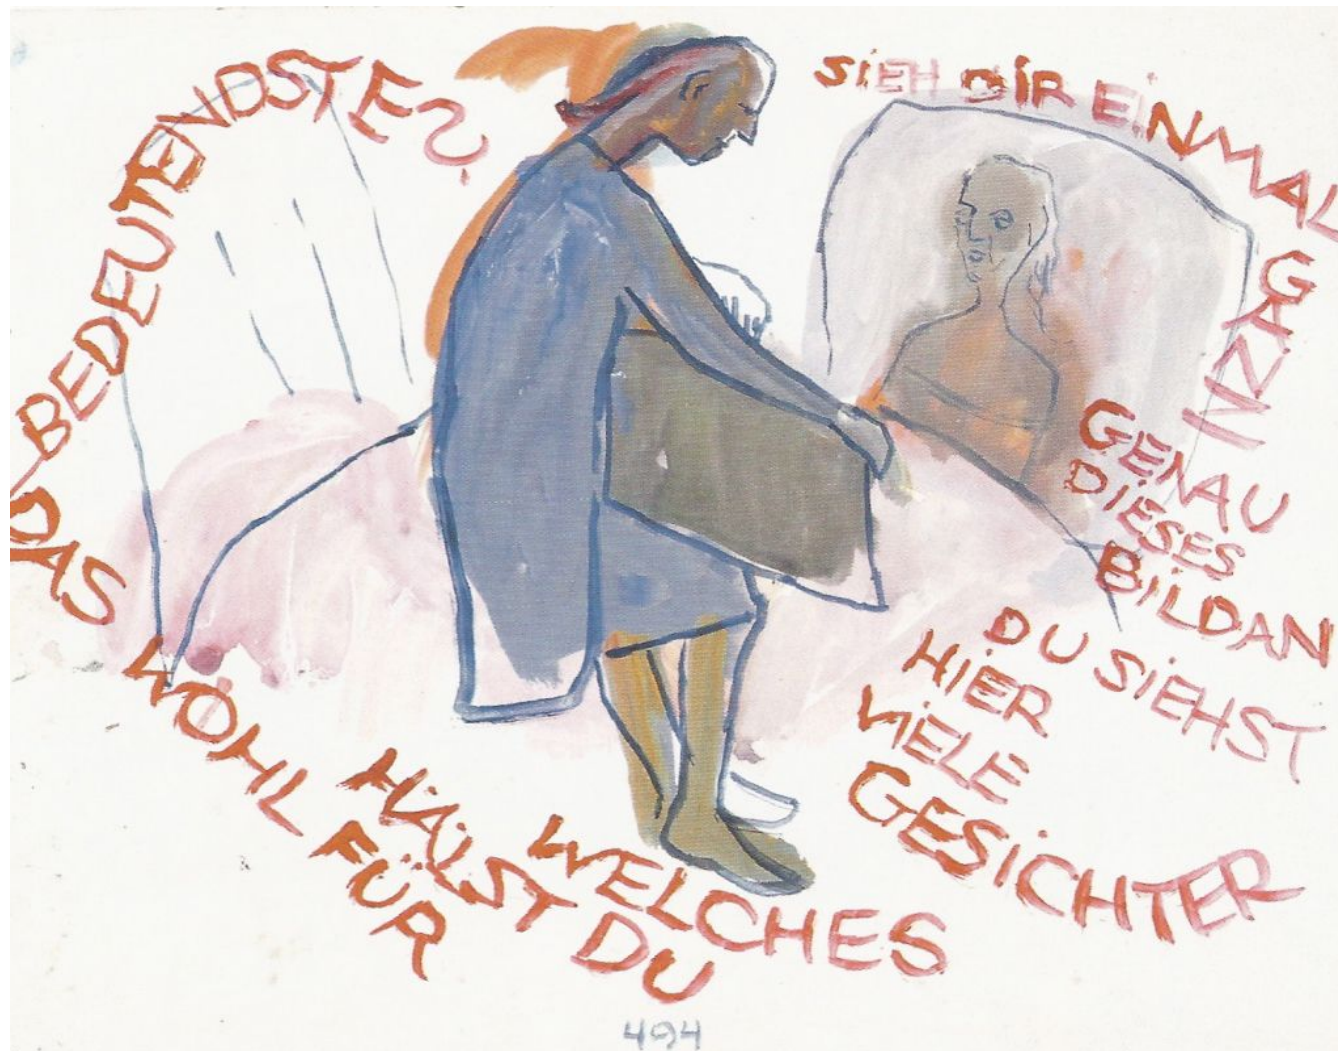 SIEH DIR EINMAL GANZ
GENAU
DIESES
BILD AN
DU SIEHST
HIER
VIELE
GESICHTER
WELCHES
HÄLST DU
FÜR
WOHL
DAS BEDEUTENDSTE?
494